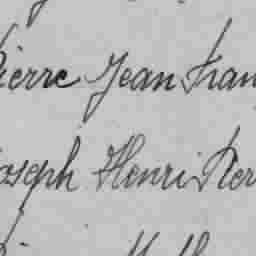 Pierre Jean Fran
Joseph Henri Pier